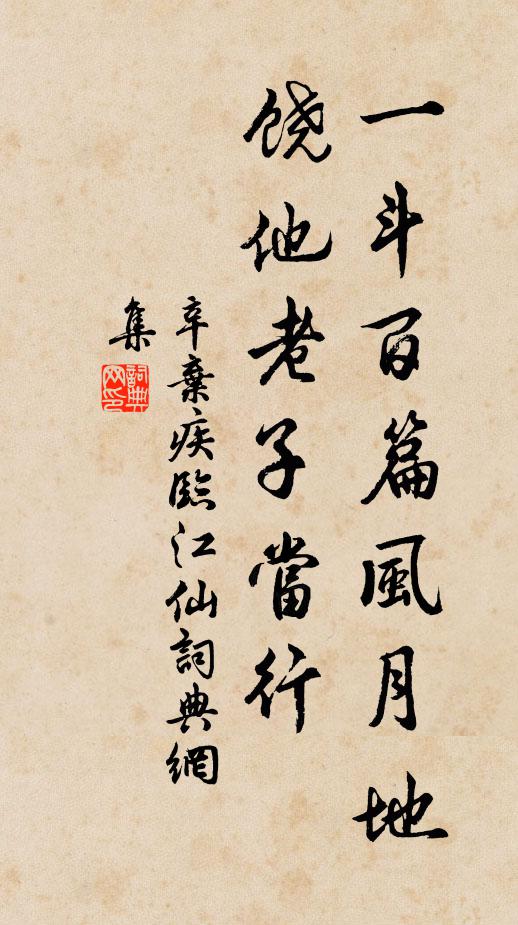 一斗百篇風月地
饒他老子當行
辛棄疾臨江仙詞典網
集
詞典網印